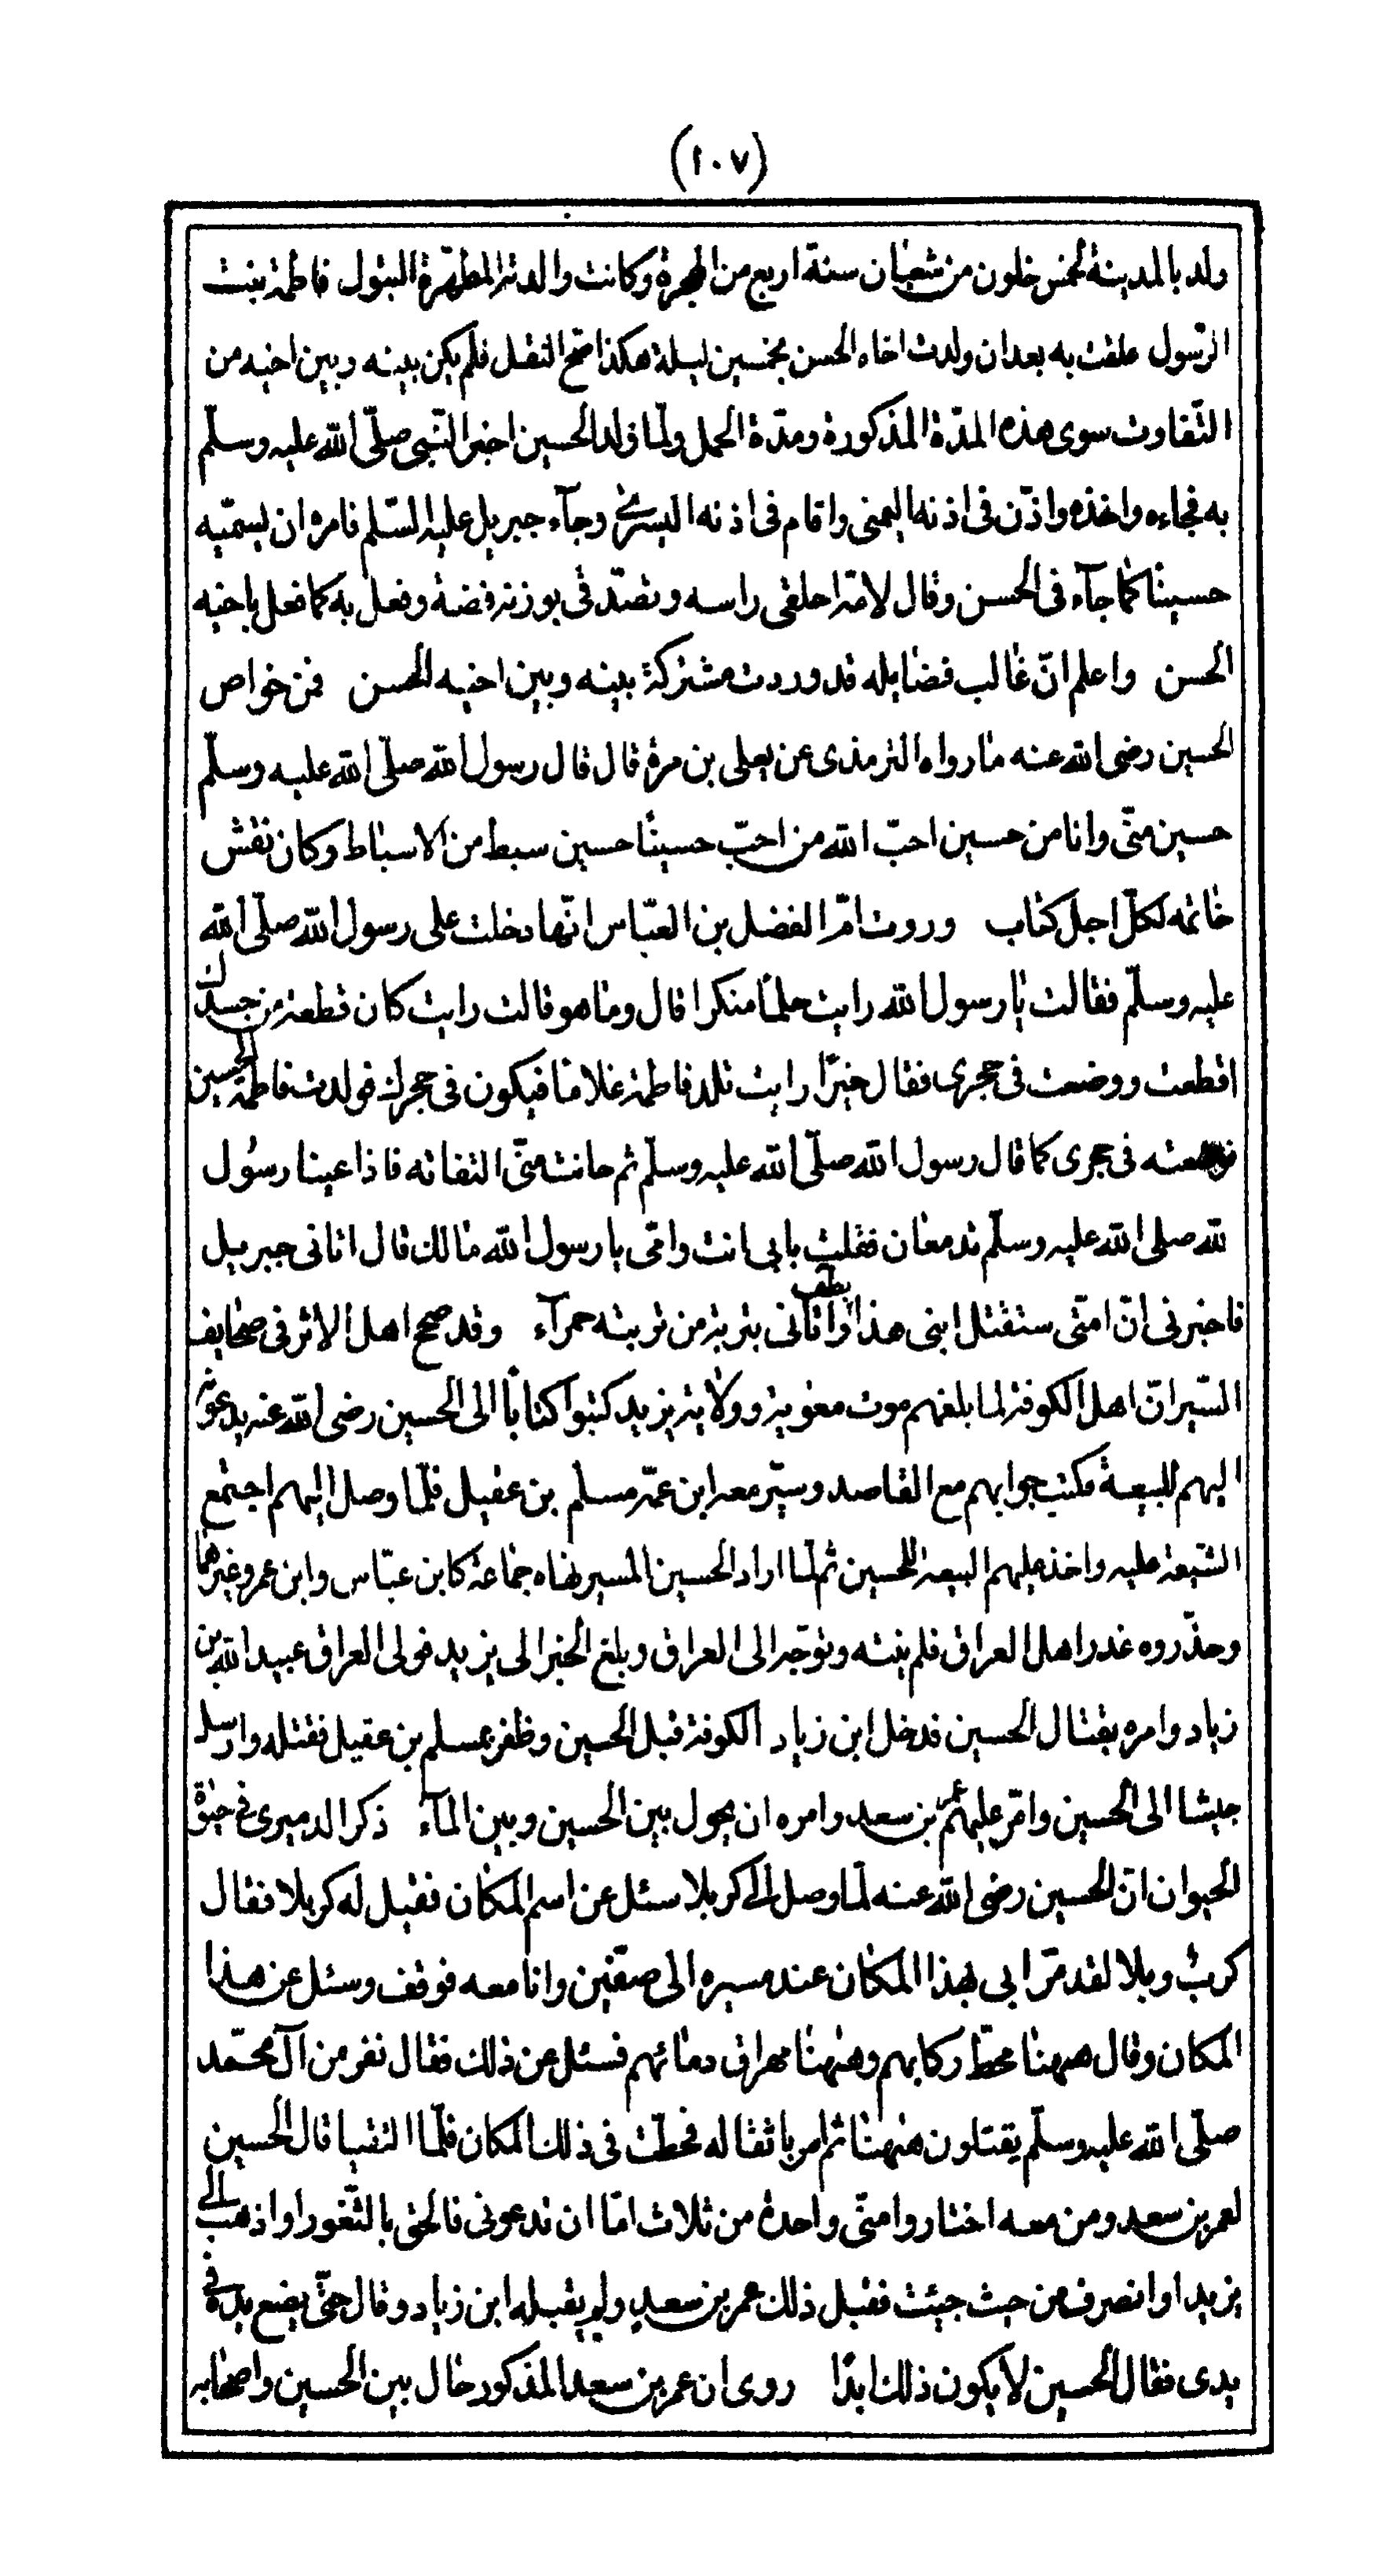 (١٠٧)
ولد بالمدينة لخمس خلون من شعبان سنة اربع من الهجرة وكانت والدته المطهّرة البتول فاطمة بنت
الرّسول علقت به بعد ان ولدت اخاه الحسن بخمسين ليلة هكذا صحّ النقل فلم يكن بينه وبين اخيه من
التّفاوت سوى هذه المدّة المذكورة ومدّة الحمل ولمّا ولد الحسين اخبر النّبى صلّى الله عليه وسلّم
به فجاءه واخذه واذّن فى اذنه اليمنى واقام فى اذنه اليسرى وجآء جبريل عليه السّلم فامره ان يسمّيه
حسينًا كما جآء فى الحسن وقال لامّه احلقى راسه وتصدّقى بوزنه فضة وفعل به كما فعل باخيه
الحسن واعلم انّ غالب فضايله قد وردت مشتركة بينه وبين اخيه الحسن فمن خواص
الحسين رضى الله عنه ما رواه الترمذى عن يعلى بن مرة قال قال رسول الله صلّى الله عليه وسلّم
حسين منّى وانا من حسين احبّ الله من احبّ حسينًا حسين سبط من الاسباط وكان نقش
خاتمه لكلّ اجل كتاب وروت امّ الفضل بن العبّاس انّها دخلت على رسول الله صلّى الله
عليه وسلّم فقالت يا رسول الله رايت حلمًا منكرا قال وما هو قالت رايت كان قطعة من جسدك
اقطعت ووضعت فى حجرى فقال خيرًا رايت تلد فاطمة غلاما فيكون فى حجرك فولدت فاطمة الحسين
فوضعته فى حجرى كما قال رسول الله صلّى الله عليه وسلّم ثم حانت منّى التفاته فاذا عينا رسول
الله صلى الله عليه وسلّم تدمعان فقلت بابى انت وامّى يا رسول الله مالك قال اتانى جبريل
فاخبرنى انّ امتّى ستقتل ابنى هذا واتانى بتربة من تربته حمرآء وقد صحح اهل الاثر فى صحايف
السّير انّ اهل الكوفة لما بلغهم موت معوية وولاية يزيد كتبوا كتابًا الى الحسين رضى الله عنه يدعوه
اليهم للبيعة فكتب جوابهم مع القاصد وسيّر معه ابن عمّه مسلم بن عقيل فلمّا وصل اليهم اجتمع
الشّيعة عليه واخذ عليهم البيعة للحسين ثم لمّا اراد الحسين المسير نهاه جماعة كابن عبّاس وابن عمر وغيرهما
وحذّروه غدر اهل العراق فلم ينته وتوجّه الى العراق وبلغ الخبر الى يزيد فولى العراق عبيد الله بن
زياد وامره بقتال الحسين فدخل ابن زياد الكوفة قبل الحسين وظفر بمسلم بن عقيل فقتله وارسل
جيشا الى الحسين وامّر عليهم عمر بن سعد وامره ان يحول بين الحسين وبين المآء ذكر الدميرى فى حيوة
الحيوان انّ الحسين رضى الله عنه لمّا وصل الى كربلا سئل عن اسم المكان فقيل له كربلا فقال
كربٌ وبلا لقد مرّ ابى بهذا المكان عند مسيره الى صفّين وانا معه فوقف وسئل عن هذا
المكان وقال ههنا محطّ ركابهم وههنا مهراق دمائهم فسئل عن ذلك فقال نفر من آل محمّد
صلّى الله عليه وسلّم يقتلون ههنا ثم امر باثقاله فحطّت فى ذلك المكان فلمّا التقيا قال الحسين
لعمر بن سعد ومن معه اختاروا منّى واحدة من ثلاث امّا ان تدعونى فالحق بالثّغور او اذهب الى
يزيد او انصرف من حيث جيئت فقبل ذلك عمر بن سعد ولم يقبله ابن زياد وقال حتّى يضع يده فى
يدى فقال الحسين لا يكون ذلك ابدًا روى ان عمر بن سعد المذكور حال بين الحسين واصحابه